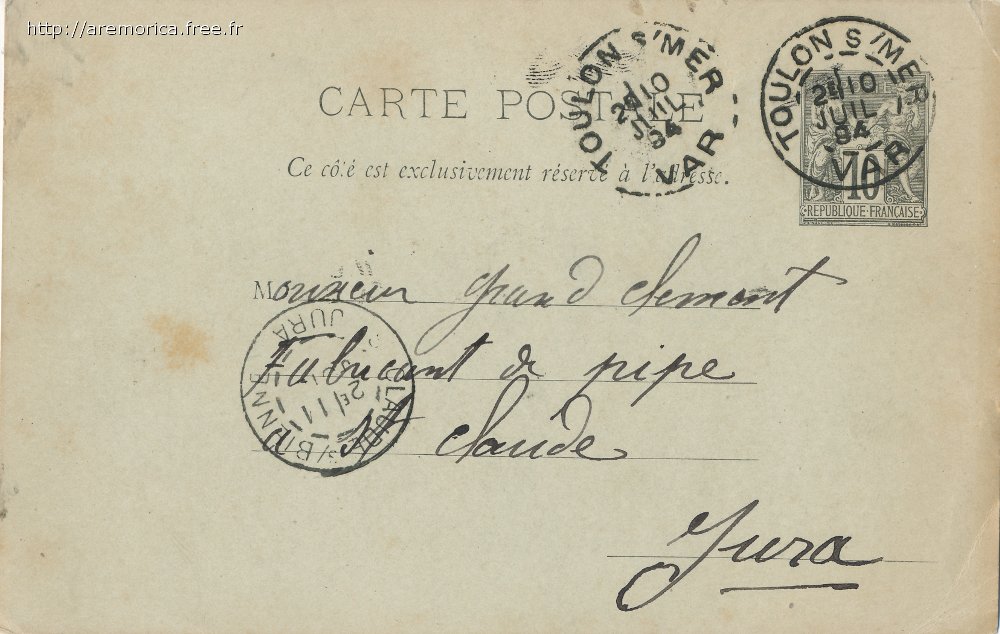 http://aremorica.free.fr
CARTE POSTALE
Ce côté est exclusivement réservé à l'adresse.
TOULON S/MER
2E 10
JUIL
94
VAR
TOULON S/MER
2E 10
JUIL
94
VAR
10
REPUBLIQUE FRANÇAISE
Monsieur Grand Clement
Fabricant de pipe
St Claude
Jura
CLAUDE S/ BIENNE
2E 11
JURA